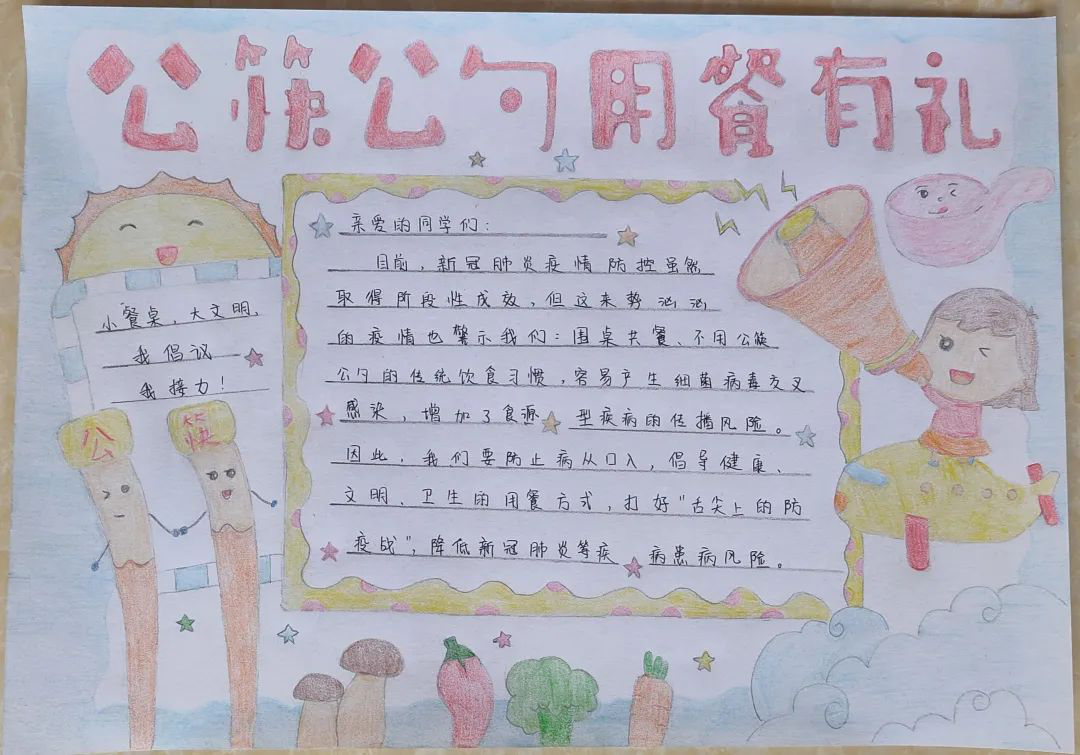 公筷公勺用餐有礼
小餐桌，大文明、
我倡议
我接力！
公 筷
亲爱的同学们：
目前，新冠肺炎疫情防控虽然
取得阶段性成效，但这来势汹汹
的疫情也警示我们：围桌共餐、不用公筷
公勺的传统饮食习惯，容易产生细菌病毒交叉
感染，增加了食源型疾病的传播风险。
因此，我们要防止病从口入，倡导健康、
文明、卫生的用餐方式，打好"舌尖上的防
疫战"，降低新冠肺炎等疾病患病风险。